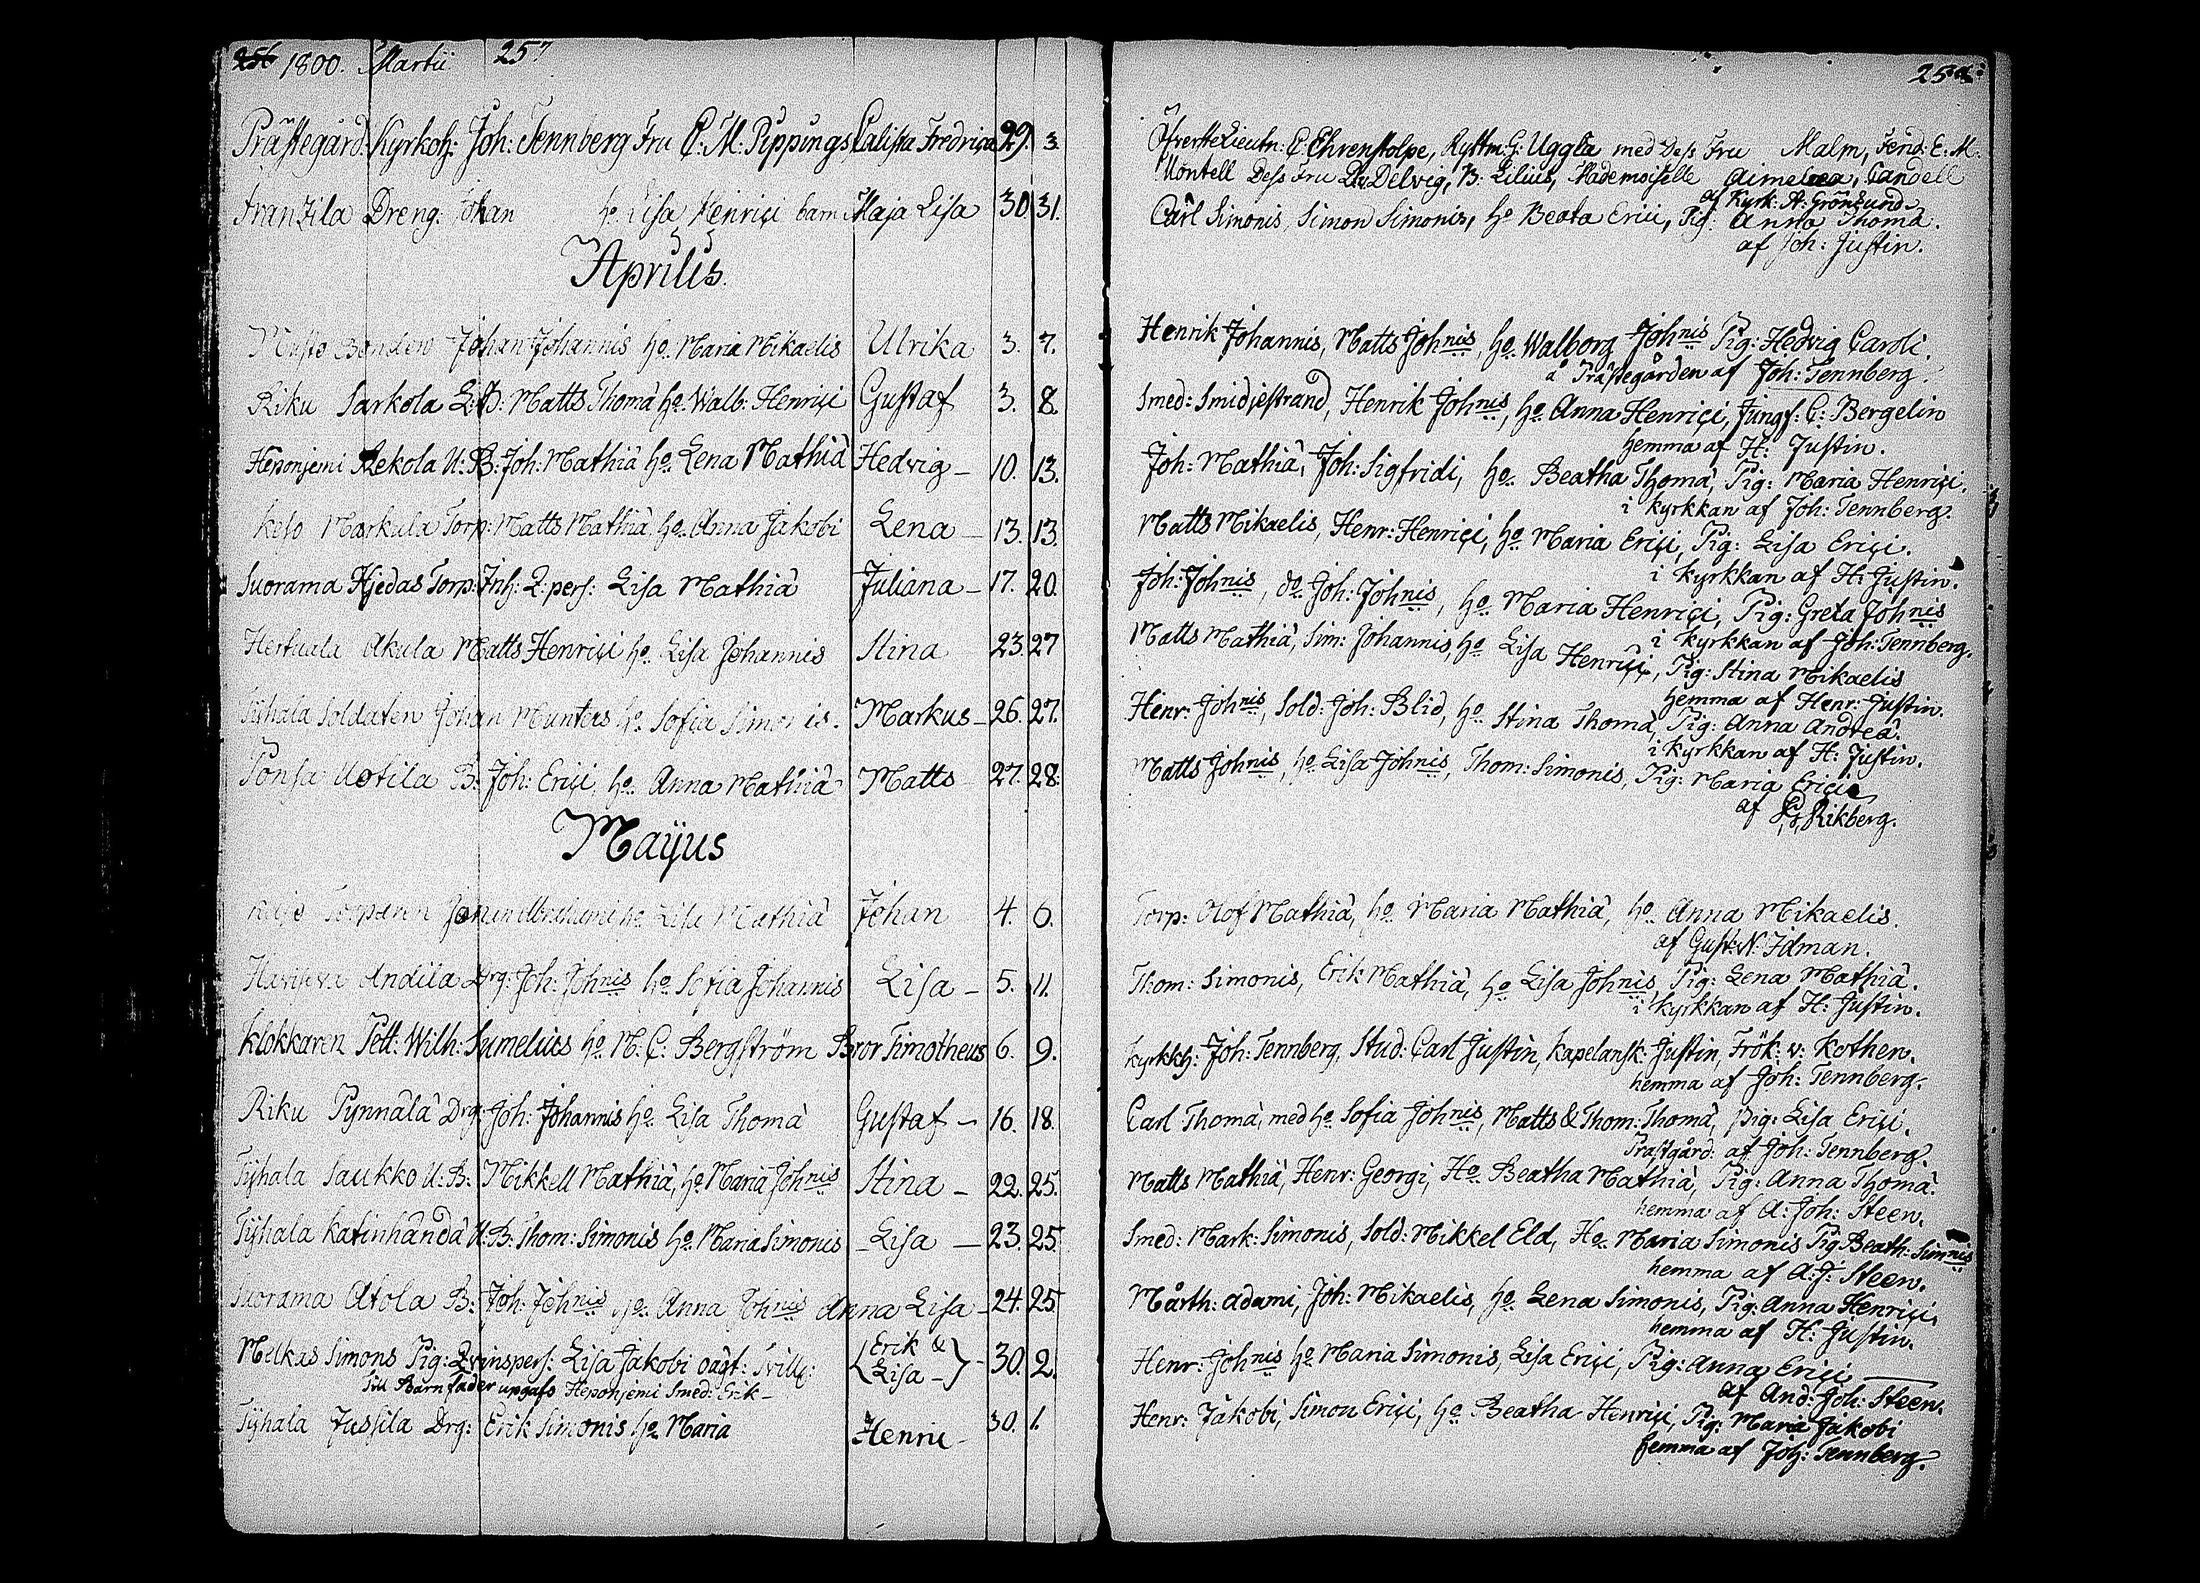 256 1800. Martii 257
Prästegård: Kyrkoh: Joh: Tennberg Fru C: M: Pippings Calista Fredrica 29. 3.
Franzila Dreng: Johan ho. Lisa Henrici barn Maja Lisa 30 31.
Aprilis.
Bonden Johan Johannis ho. Maria Mikaelis Ulrika 3. 7.
Riku Sarkola L: B: Matts Thomæ ho. Walb: Henrici Gustaf 3. 8.
Heponjemi Rekola U: B: Joh: Mathiæ ho. Lena Mathiæ Hedvig – 10. 13.
Markula Torp: Matts Mathiæ ho. Anna Jakobi Lena – 13. 13.
Suorama Hjedas Torp: Inh: Q: pers: Lisa Mathiæ Juliana – 17. 20.
Hertuala Akula Matts Henrici ho. Lisa Johannis Stina 23. 27
Tÿhala Soldaten Johan Munters ho. Sofia Simonis. Markus – 26. 27.
Ponsa Uotila B: Joh: Erici ho. Anna Mathiæ Matts 27. 28.
Mayus
Torparen Johan Abrahami ho. Lisa Mathiæ Johan 4. 6.
Andila Drg: Joh: Johnis ho. Sofia Johannis Lisa – 5. 11.
Klokkaren Pett: Wilh: Sumelius ho. M: C: Bergström Bror Timotheus 6. 9.
Riku Pynnälä Drg: Joh: Johannis ho. Lisa Thomæ Gustaf – 16. 18.
Tÿhala Saukko U: B: Mikkell Mathiæ, ho. Maria Johnis Stina – 22. 25.
Tÿhala Katinhända U. B: Thom: Simonis ho. Maria Simonis – Lisa – 23. 25.
Suorama Atola B: Joh: Johnis ho. Anna Johnis Anna Lisa – 24. 25
Melkas Simons Pig: Qvinspers: Lisa Jakobi oägt: Tvill: {Erik & Lisa –} – 30. 2.
Till Barnfader upgafs Heponjemi Smed: Erik –
Tÿhala Jussila Drg: Erik Simonis ho. Maria Henric – 30. 1.
Öfverste Lieutn: C: Ehrenstolpe, Ryttm: G: Uggla med Dess Fru Malm, Fend: E: M:
Montell Dess Fru Delvig, B: Lilius, Mademoiselle Aimelæa, Candell
af Kyrk: A: Grönlund
Carl Simonis, Simon Simonis, ho Beata Erici, Pig: Anna Thomæ.
af Joh: Justin.
Henrik Johannis, Matts Johnis, ho. Walborg Johnis Pig: Hedvig Caroli.
å Prästegården af Joh: Tennberg.
Smed: Smidjestrand, Henrik Johnis, ho. Anna Henrici, Jungf: C: Bergelin
hemma af H: Justin.
Joh: Mathiæ, Joh: Sigfridi, ho. Beatha Thomæ, Pig: Maria Henrici.
i Kyrkkan af Joh: Tennberg.
Matts Mikaelis, Henr: Henrici, ho Maria Erici, Pig: Lisa Erici.
i Kyrkkan af H: Justin.
Joh: Johnis, do Joh: Johnis, ho. Maria Henrici, Pig: Greta Johnis
i kyrkkan af Joh: Tennberg.
Matts Mathiæ, Sim: Johannis, ho Lisa Henrici, Pig: Stina Mikaelis
hemma af Henr: Justin.
Henr: Johnis, Sold: Joh: Blid, ho Stina Thomæ, Pig: Anna Andreæ.
i Kyrkkan af H: Justin.
Matts Johnis, ho. Lisa Johnis, Thom: Simonis, Pig: Maria Erici
af Rikberg.
Torp: Olof Mathiæ, ho. Maria Mathiæ, ho. Anna Mikaelis.
af Gust: N: Idman.
Thom: Simonis, Erik Mathiæ, ho Lisa Johnis, Pig: Lena Mathiæ.
i kyrkkan af H: Justin.
Kyrkkh: Joh: Tennberg, Stud: Carl Justin, Kapelansk: Justin, Frök: v: Kothen.
hemma af Joh: Tennberg.
Carl Thomæ, med ho Sofia Johnis, Matts & Thom: Thomæ, Pig: Lisa Erici.
Prästgård: af Joh: Tennberg.
Matts Mathiæ, Henr: Georgi, Ho. Beatha Mathiæ, Pig: Anna Thomæ.
hemma af A: Joh: Steen.
Smed: Mark: Simonis, Sold: Mikkel Eld, Ho. Maria Simonis Pig Beath: Simnis
hemma af A: J: Steen.
Mårth: Adami, Joh: Mikaelis, ho Lena Simonis, Pig: Anna Henrici,
hemma af H: Justin.
Henr: Johnis ho Maria Simonis, Lisa Erici, Pig: Anna Erici
af And: Joh: Steen.
Henr: Jakobi, Simon Erici, ho. Beatha Henrici, Pig: Maria Jakobi
hemma af Joh: Tennberg.